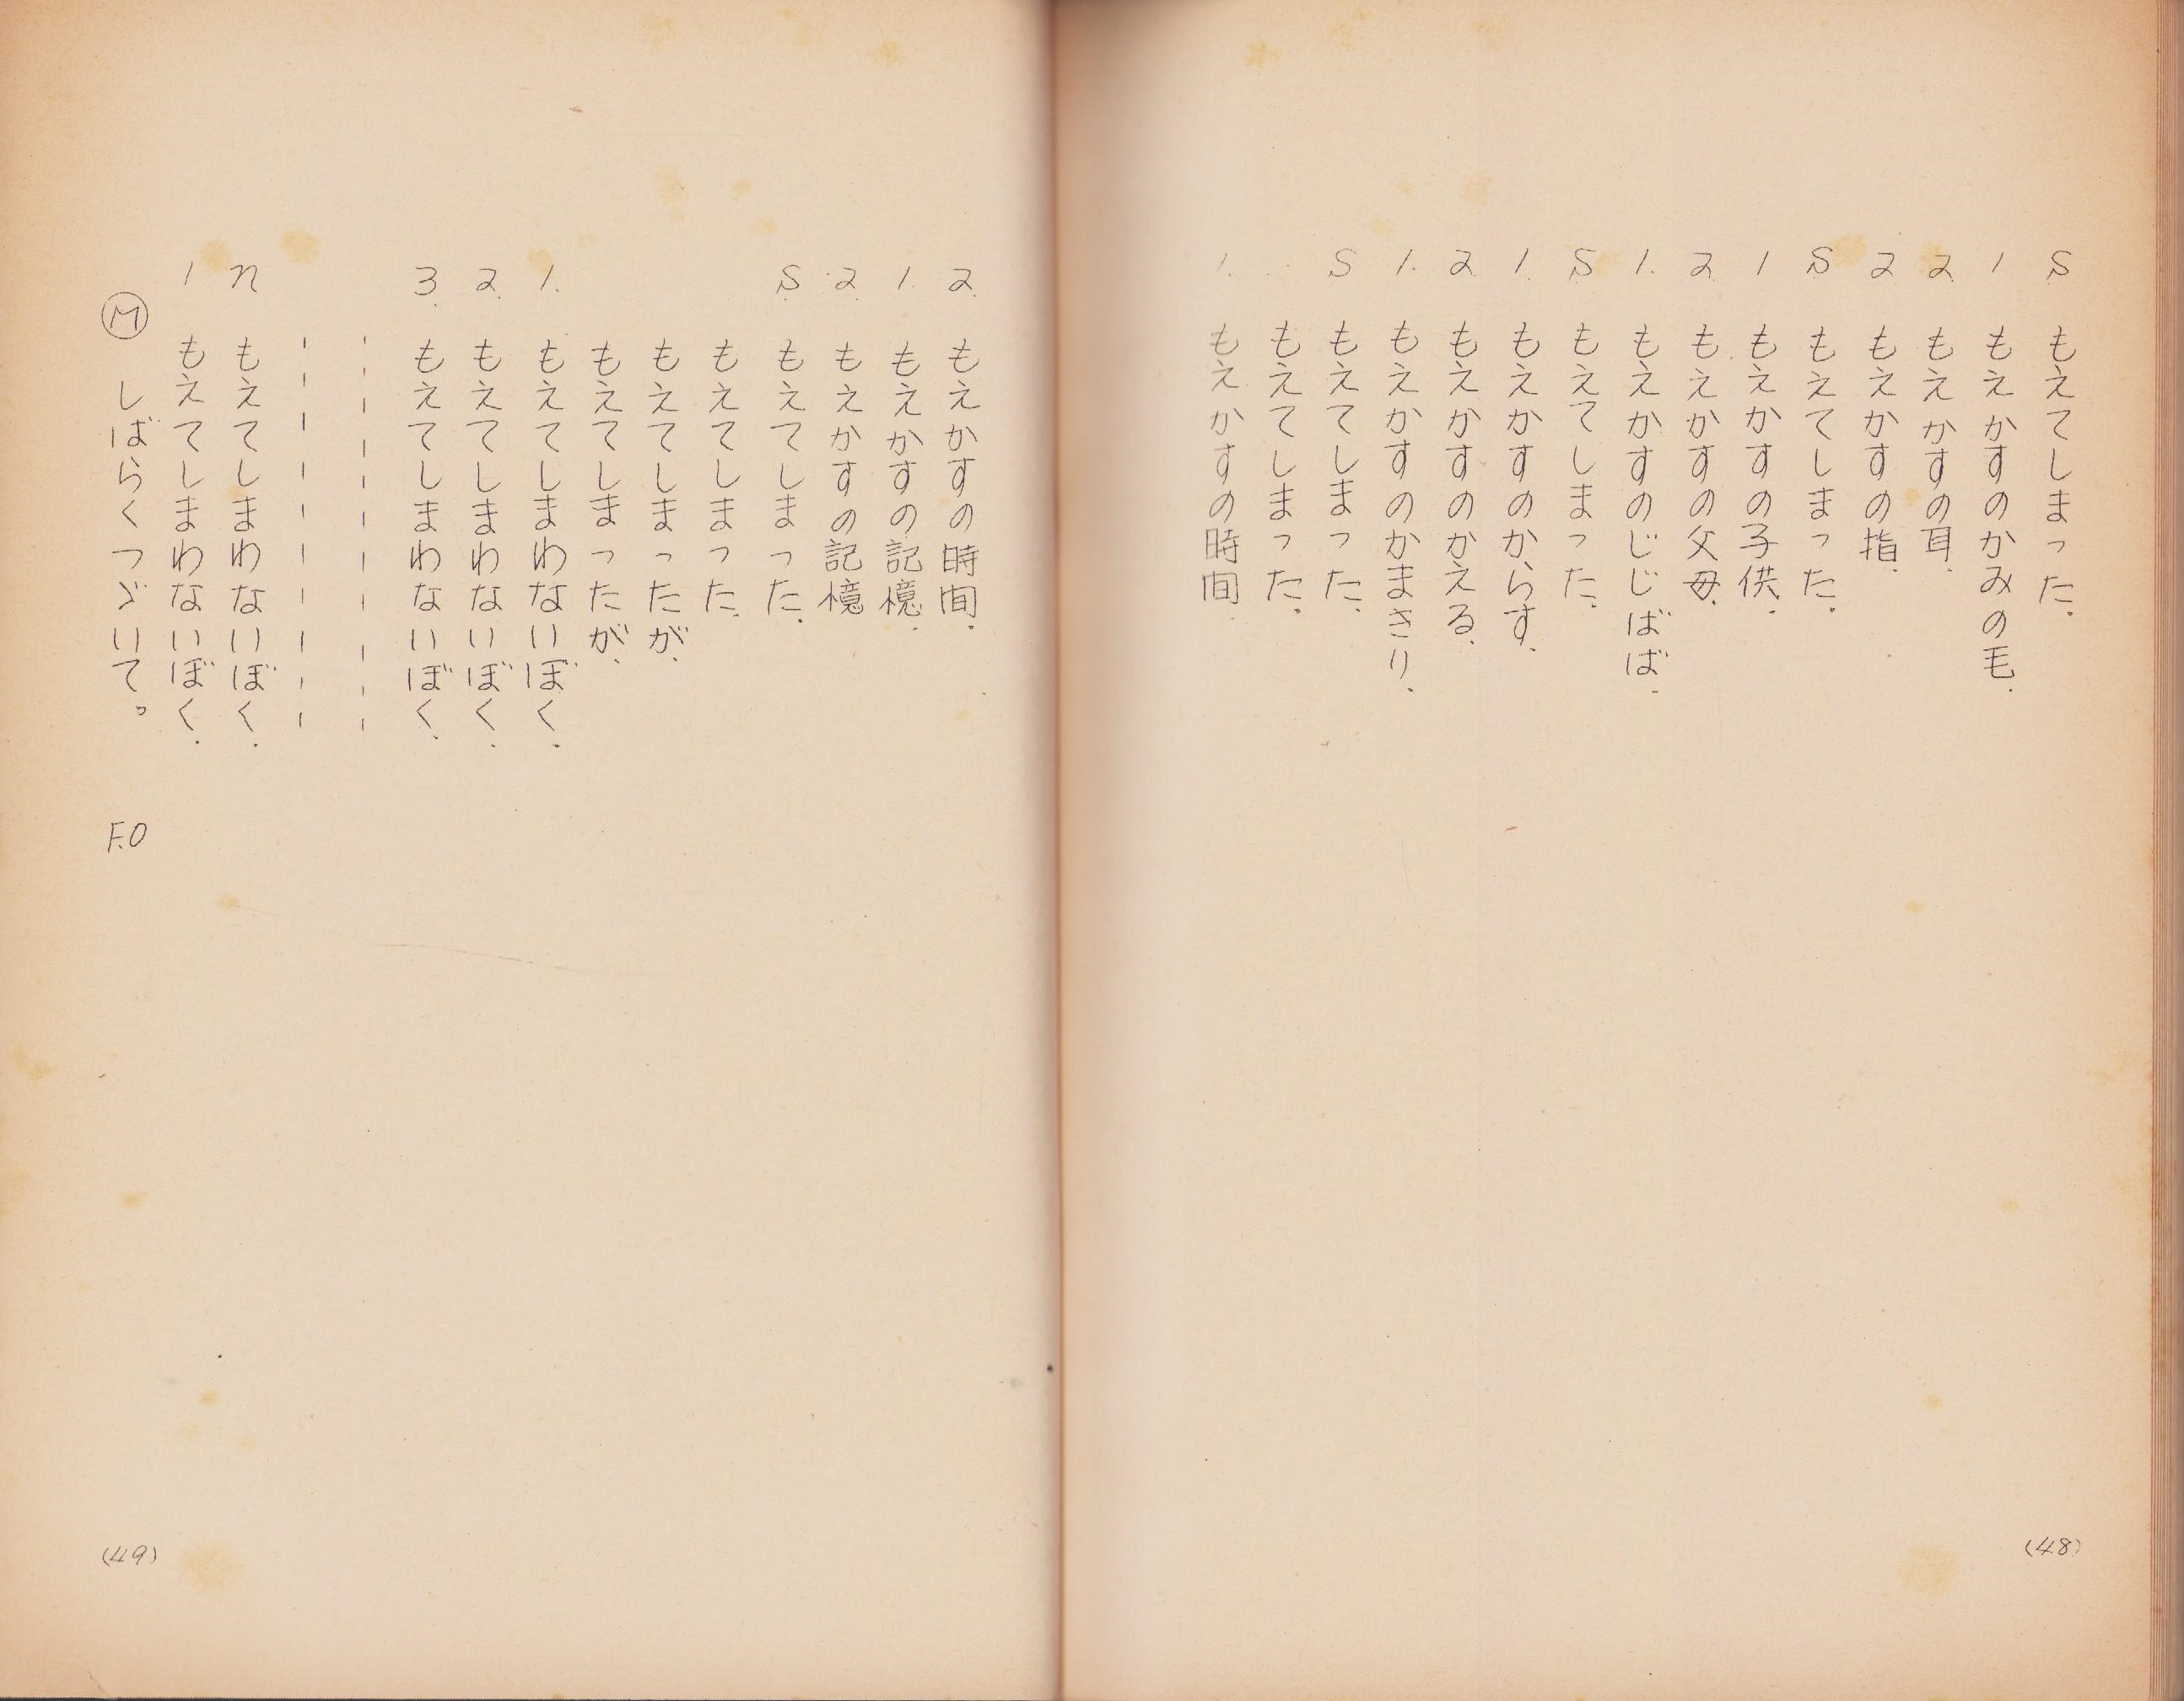 S もえてしまった.
1 もえかすのかみの毛.
2 もえかすの耳.
2 もえかすの指.
S もえてしまった.
1 もえかすの子供.
2 もえかすの父母.
1. もえかすのじじばば.
S もえてしまった.
1. もえかすのからす.
2 もえかすのかえる.
1. もえかすのかまきり.
S もえてしまった.
もえてしまった.
1. もえかすの時間.
(48)
2 もえかすの時間.
1. もえかすの記憶.
2 もえかすの記憶
S もえてしまった.
もえてしまった.
もえてしまったが.
もえてしまったが.
1. もえてしまわないぼく.
2. もえてしまわないぼく.
3. もえてしまわないぼく.
n もえてしまわないぼく.
1 もえてしまわないぼく.
Ⓜ しばらくつゞいて。 F.O
(49)